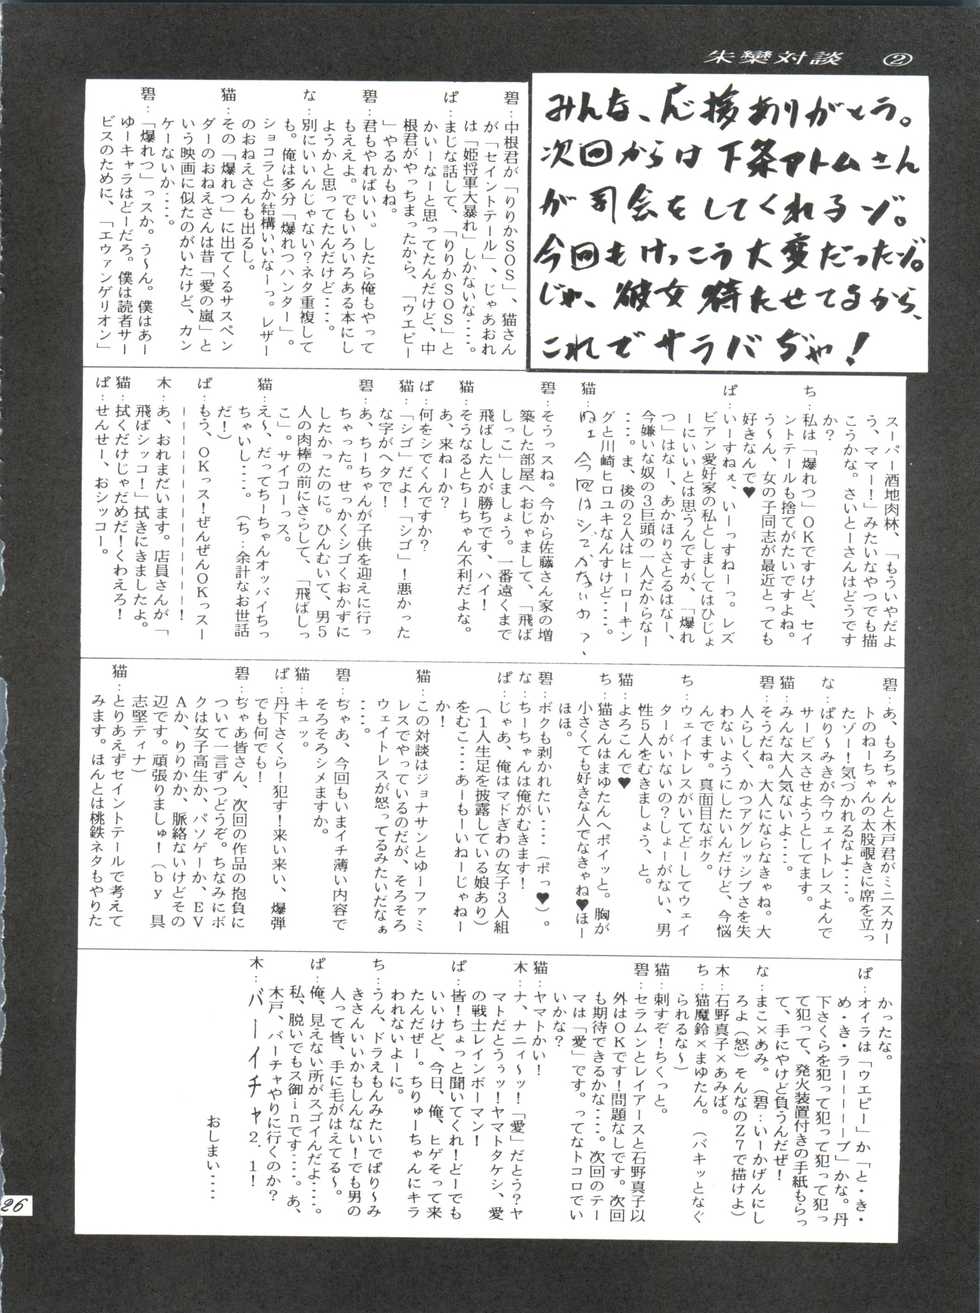 朱欒対談 ②
みんな、応援ありがとう。
次回からは下条アトムさん
が司会をしてくれるゾ。
今回もけっこう大変だったゾ。
じゃ、彼女待たせてるから、
これでサラバぢゃ!
碧:中根君が「りりかSOS」、猫さん
が「セイントテール」、じゃあおれ
は「姫将軍大暴れ」しかないな・・・。
ぱ:まじな話して、「りりかSOS」と
かいーなーと思ってたんだけど、中
根君がやっちまったから、「ウエピー
」やるかもね。
碧:君もやればいい。したら俺もやって
もええよ。でもいろいろある本にし
ようかと思ってたんだけど・・・。
な:別にいいんじゃない?ネタ重複して
も。俺は多分「爆れつハンター」。
ショコラとか結構いいなーっ。レザー
のおねえさんも出るし。
猫:その「爆れつ」に出てくるサスペン
ダーのおねえさんは昔「愛の嵐」と
いう映画に似たのがいたけど、カン
ケーないか・・・。
碧:「爆れつ」っスか。う〜ん。僕はあー
ゆーキャラはどーだろ。僕は読者サー
ビスのために、「エウァンゲリオン」
スーパー酒地肉林、「もういやだよ
う、ママー!」みたいなやつでも描
こうかな。さいとーさんはどうです
か?
ち:私は「爆れつ」OKですけど、セイ
ントテールも捨てがたいですよね。
う〜ん、女の子同志が最近とっても
好きなんで♥
ぱ:いーすねぇ、いーっすねーっ。レズ
ビアン愛好家の私としましてはひじょ
ーにいいとは思うんですが、「爆れ
つ」はなー、あかほりさとるはなー、
今嫌いな奴の3巨頭の一人だからなー
・・・。ま、後の2人はヒーローキン
グと川崎ヒロユキなんすけど・・・。
猫:ねェ、今回はシモ
碧:そうっスね。今から佐藤さん家の増
築した部屋へおじゃまして、「飛ば
しっこ」しましょう。一番遠くまで
飛ばした人が勝ちです、ハイ!
猫:そうなるとちーちゃん不利だよな。
あ、来ねーか?
ぱ:何をシでくんですか?
猫:「シゴ」だよ!「シゴ」!悪かった
な字がヘタで!
碧:あ、ちーちゃんが子供を迎えに行っ
ちゃった。せっかくシゴくおかずに
したかったのに。ひんむいて、男5
人の肉棒の前にさらして、「飛ばしっ
こ」。サイコーっス。
猫:え〜、だってちーちゃんオッパイちっ
ちゃいし・・・。(ち:余計なお世話
だ!)
ぱ:もう、OKっス!ぜんぜんOKっスー
ーーーーーーーーーー!
木:あ、おれまだいます。店員さんが「
飛ばシッコ!」拭きにきましたよ。
猫:拭くだけじゃだめだ!くわえろ!
ぱ:せんせー、おシッコー。
碧:あ、もろちゃんと木戸君がミニスカー
トのねーちゃんの太股覗きに席を立っ
たゾー!気づかれるなよ・・・・。
な:ぱり〜みきが今ウェイトレスよんで
サービスさせようとしてます。
猫:みんな大人気ないよ・・・。
碧:そうだね。大人にならなきゃね。大
人らしく、かつアグレッシブさを失
わないようにしたいんだけど、今悩
んでます。真面目なボク。
ち:ウェイトレスがいてどーしてウェイ
ターがいないの?しょーがない、男
性5人をむきましょう、と。
ぱ:よろこんで♥
ち:猫さんはまゆたんへボイッと。胸が
小さくても好きな人でなきゃね♥ほー
ほほ。
碧:ボクも剥かれたい・・・(ボっ♥)。
な:ちーちゃんは俺がむきます!
ぱ:じゃあ、俺はマドぎわの女子3人組
(1人生足を披露している娘あり)
をむこ・・・あーもーいねーじゃねー
か!
猫:この対談はジョナサンとゆーファミ
レスでやっているのだが、そろそろ
ウェイトレスが怒ってるみたいだなぁ
・・・・。
碧:ぢゃあ、今回もいまイチ薄い内容で
そろそろシメますか。
猫:キュッ。
ぱ:丹下さくら!犯す!来い来い、爆弾
でも何でも!
碧:ぢゃあ皆さん、次回の作品の抱負に
ついて一言ずつどうぞ。ちなみにボ
クは女子高生か、パソゲーか、EV
Aか、りりかか、脈絡ないけどその
辺です。頑張りましゅ!(by 具
志堅ティナ)
猫:とりあえずセイントテールで考えて
みます。ほんとは桃鉄ネタもやりた
かったな。
ぱ:オイラは「ウエピー」か「と・き・
め・き・ラーーーーブ」かな。丹
下さくらを犯って犯って犯って犯っ
て犯って、発火装置付きの手紙もらっ
て、手にやけど負うんだぜ!
な:まこ×あみ。(碧:いーかげんにし
ろよ(怒)そんなのZ7で描けよ)
木:石野真子×あみば。
ち:猫魔鈴×まゆたん。(バキッとなぐ
られるな〜)
猫:刺すぞ!ちくっと。
碧:セラムンとレイアースと石野真子以
外はOKです!問題なしです。次回
も期待できるかな・・・。次回のテー
マは「愛」です。ってなトコロでい
いかな?
猫:ヤマトかい!
木:ナ、ナニィ〜ッ!「愛」だとう?ヤ
マトだとうぅッ!ヤマトタケシ、愛
の戦士レインボーマン!
ぱ:皆!ちょっと聞いてくれ!どーでも
いいけど、今日、俺、ヒゲそって来
たんだぜー。ちりゅーちゃんにキラ
われないよーに。
ち:うん、ドラえもんみたいでぱり〜み
きさんいいかもしんない!でも男の
人って皆、手に毛がはえてる〜。
ぱ:俺、見えない所がスゴイんだよ・・・。
私、脱いでもス御inです・・・。あ、
木戸、バーチャやりに行くのか?
木:バーイチャ2.1!
おしまい・・・・
26